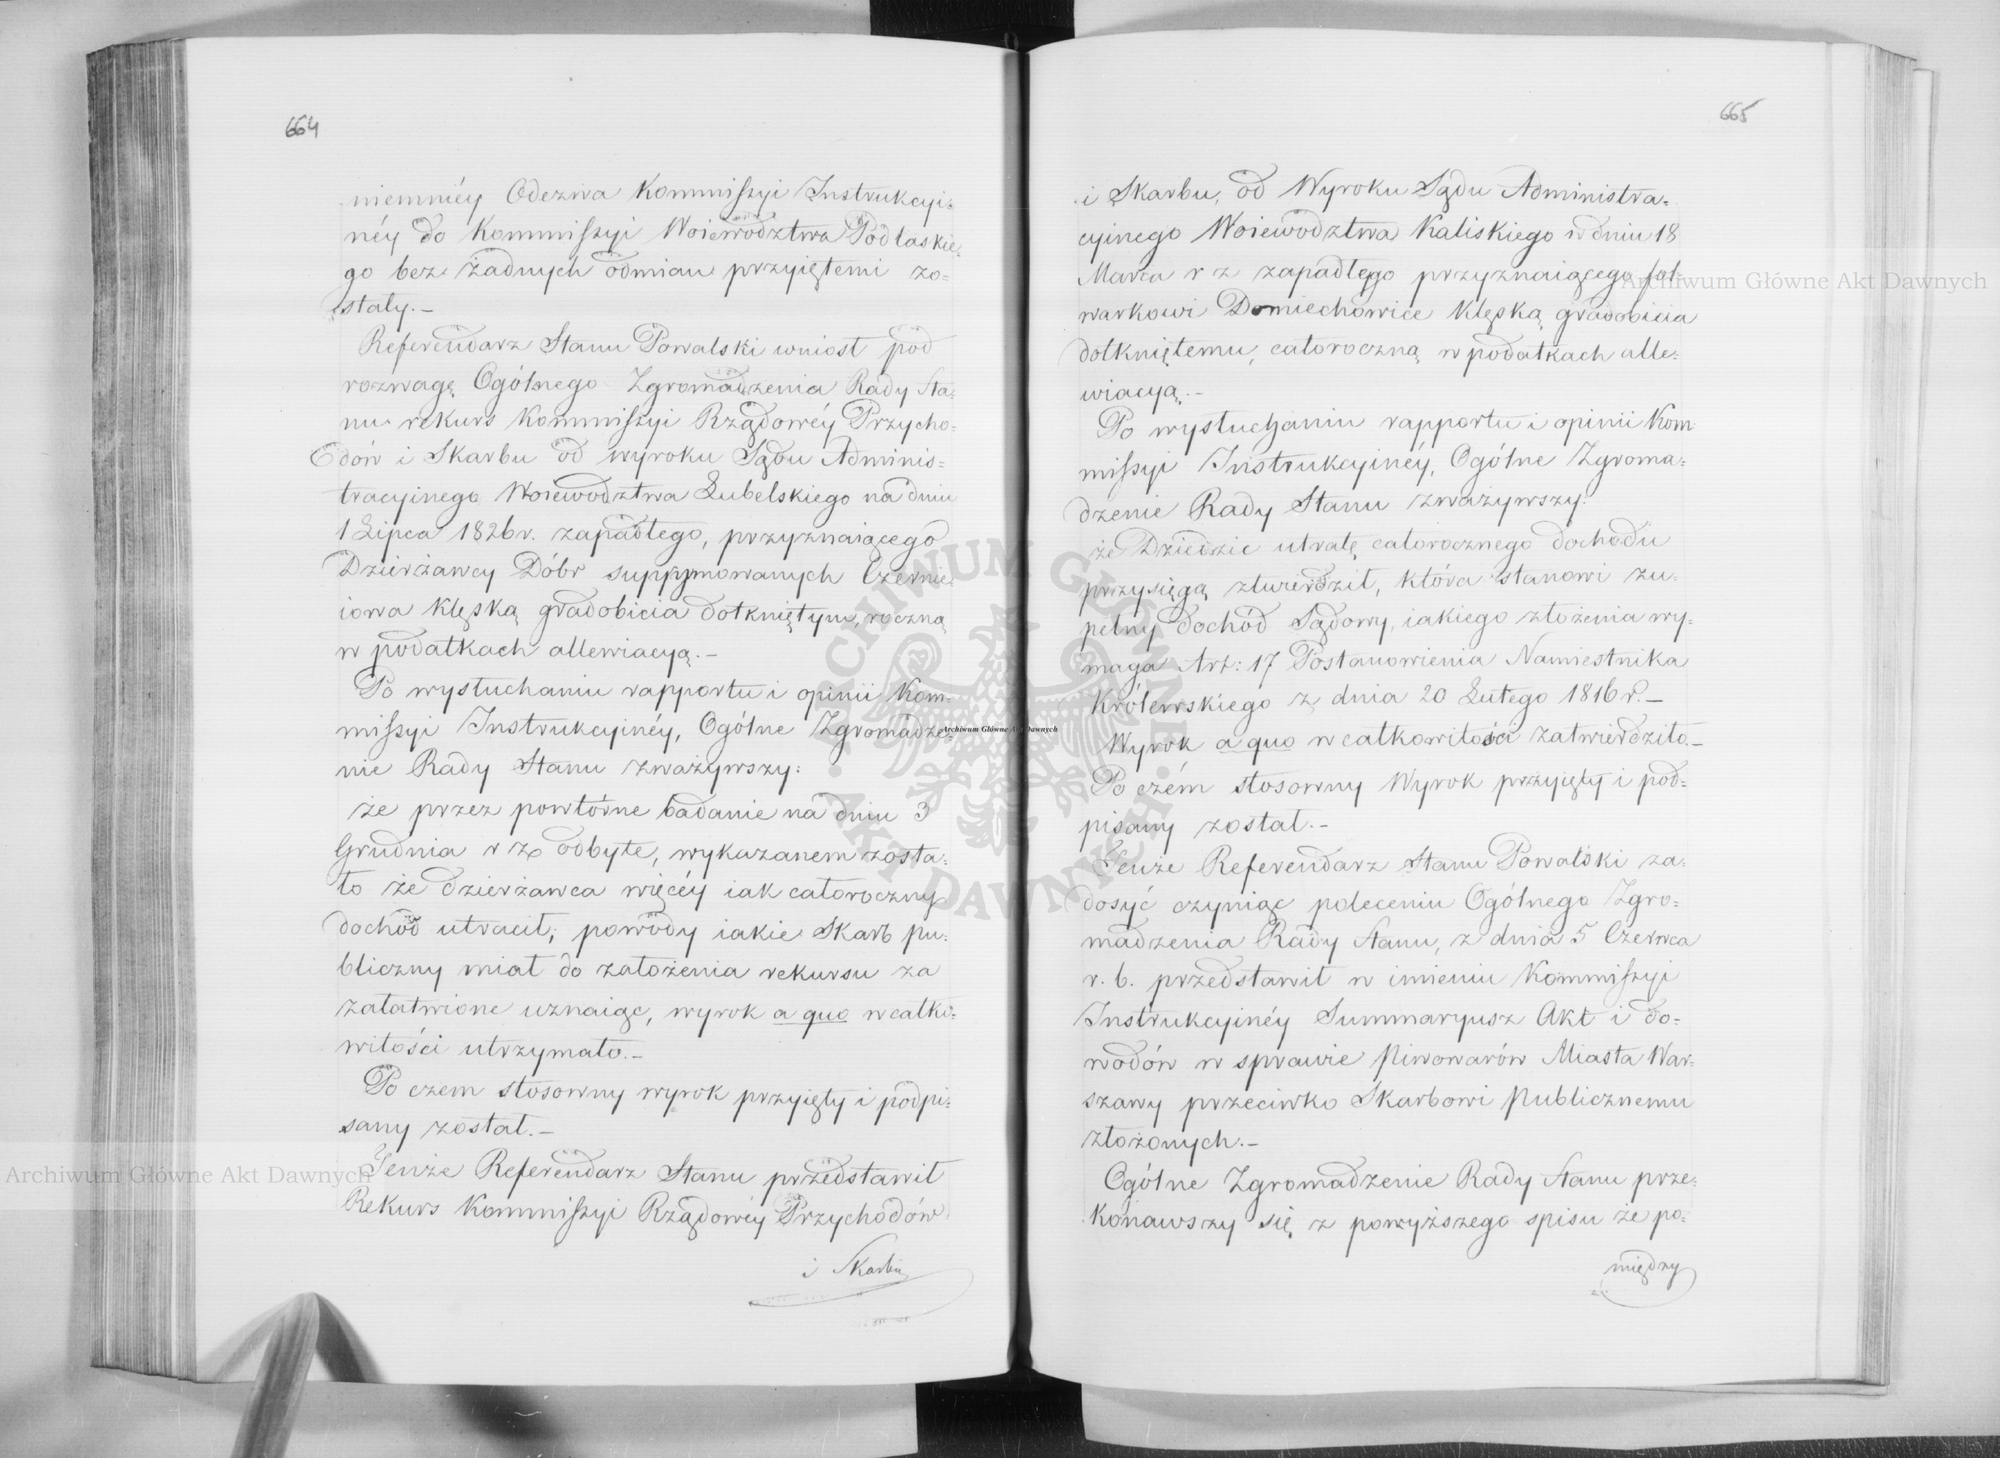 664
niemniéy Odezwa Kommissyi Instrukcyi-
néy do Kommissyi Woiewództwa Podlaskie-
go bez żadnych odmian przyiętemi zo-
stały.-
Referendarz Stanu Powalski wniosł pod
rozwagę Ogólnego Zgromadzenia Rady Sta-
nu rekurs Kommissyi Rządowéy Przycho-
dów i Skarbu od wyroku Sądu Adminis-
tracyinego Woiewodztwa Lubelskiego na dniu
1 Lipca 1826 r. zapadłego, przyznaiącego
Dzierżawcy Dóbr suppymowanych Czernie-
iowa klęską gradobicia dotkniętym, roczną
w podatkach allewiacyą.-
Po wysłuchaniu rapportu i opinii Kom-
missyi Instrukcyinéy, Ogólne Zgromadze-
nie Rady Stanu zważywszy:
że przez powtórne badanie na dniu 3
Grudnia r z odbyte, wykazanem zosta-
ło że dzierżawca więcéy iak całoroczny
dochód utracił, powody iakie Skarb pu-
bliczny miał do założenia rekursu za
załatwione uznaiąc, wyrok a quo w całko-
witości utrzymało.-
Po czem stosowny wyrok przyięty i podpi-
sany został.-
Tenże Referendarz Stanu przedstawił
Rekurs Kommissyi Rządowéy Przychodów
i Skarbu
665
i Skarbu, od Wyroku Sądu Administra-
cyinego Woiewodztwa Kaliskiego w dniu 18
Marca r z zapadłego przyznaiącego fol-
warkowi Domiechowice klęską gradobicia
dotkniętemu, całoroczną w podatkach alle-
wiacyą.-
Po wysłuchaniu rapportu i opinii Kom
missyi Instrukcyinéy, Ogólne Zgroma-
dzenie Rady Stanu zważywszy:
że Dziedzic utratę całorocznego dochodu
przysięgą stwierdził, która stanowi zu-
pełny dochód Sądowy, iakiego złożenia wy-
maga Art: 17 Postanowienia Namiestnika
Królewskiego z dnia 20 Lutego 1816 r.-
Wyrok a quo w całkowitości zatwierdziło.-
Po czém stosowny Wyrok przyięty i pod-
pisany został.-
Tenże Referendarz Stanu Powalski za-
dosyć czyniąc poleceniu Ogólnego Zgro-
madzenia Rady Stanu, z dnia 5 Czerwca
r. b. przedstawił w imieniu Kommissyi
Instrukcyinéy Summaryusz Akt i do-
wodów w sprawie Piwowarów Miasta War-
szawy przeciwko Skarbowi Publicznemu
złożonych.-
Ogólne Zgromadzenie Rady Stanu prze-
konawszy się z powyższego spisu że po-
między
Archiwum Główne Akt Dawnych
Archiwum Główne Akt Dawnych
Archiwum Główne Akt Dawnych
ARCHIWUM GŁÓWNE AKT DAWNYCH